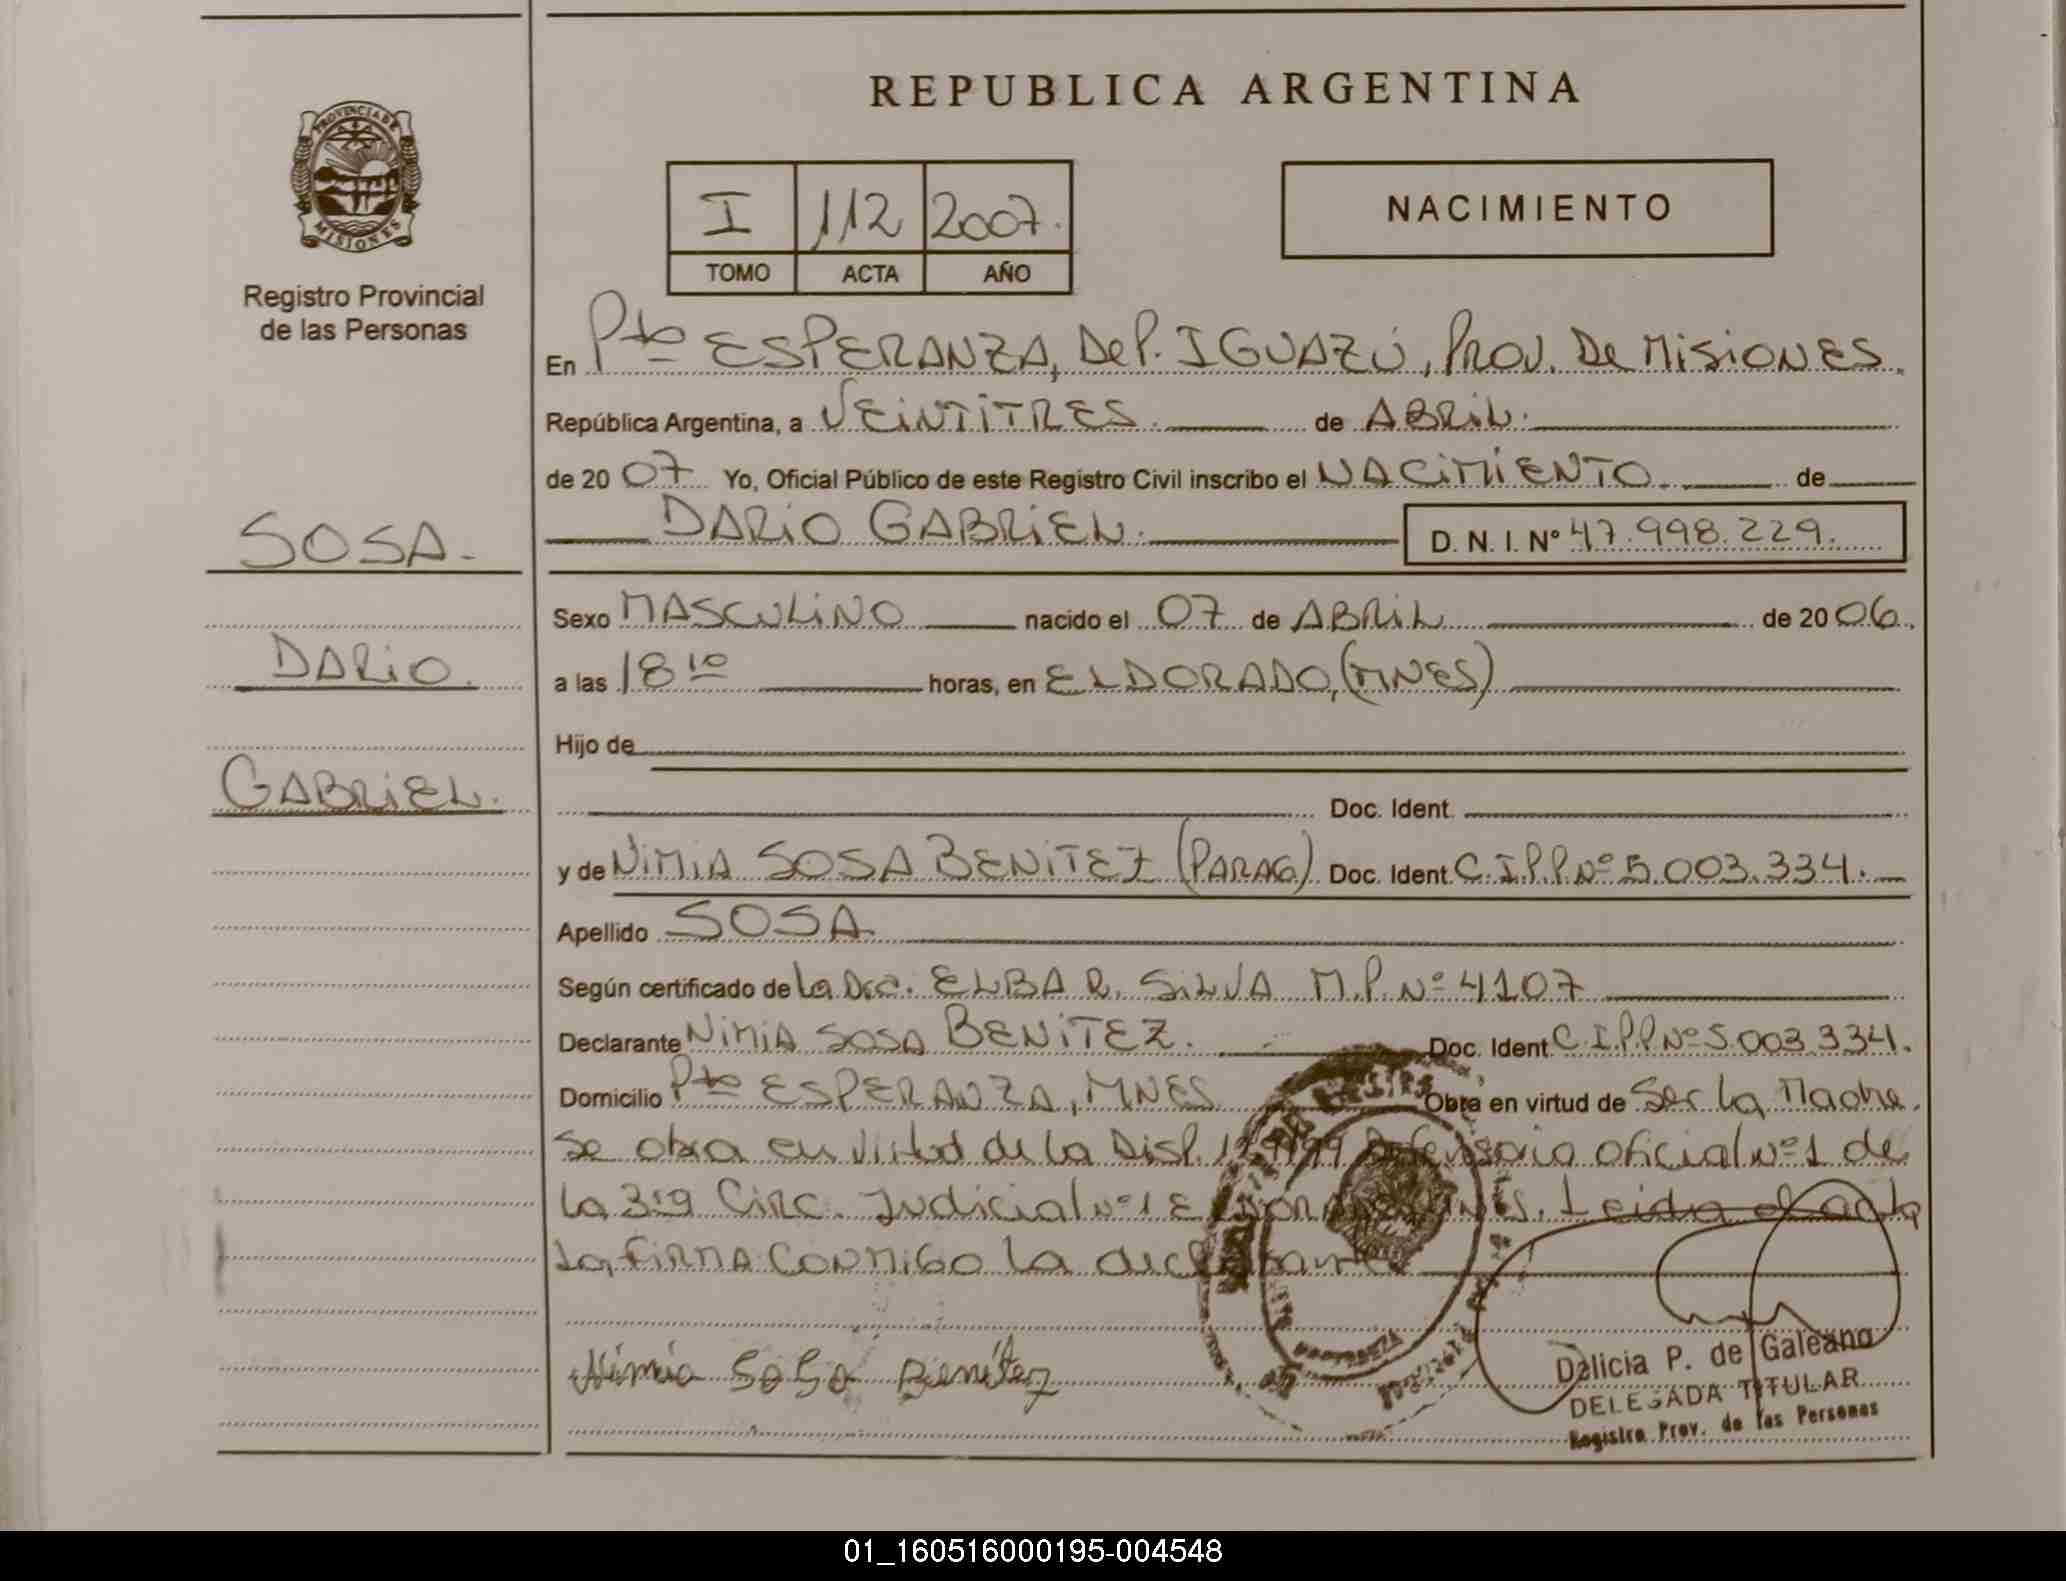 REPUBLICA ARGENTINA
PROVINCIA DE
MISIONES
Registro Provincial
de las Personas
I 112 2007.
TOMO ACTA AÑO
NACIMIENTO
En Pto ESPERANZA, DeP. IGUAZÚ, PROV. De MISIONES.
República Argentina, a VEINTITRES. de ABRIL.
de 20 07 Yo, Oficial Público de este Registro Civil inscribo el NACIMIENTO. de
DARIO GABRIEL.
D. N. I. Nº 47.998.229.
SOSA.
DARIO.
GABRIEL.
Sexo MASCULINO nacido el 07 de ABRIL de 20 06.
a las 18 10 horas, en ELDORADO, (MNES)
Hijo de
Doc. Ident.
y de NIMIA SOSA BENITEZ (PARAG) Doc. Ident. C.I.P.P.Nº 5.003.334.
Apellido SOSA
Según certificado de La Dra. ELBA R. SILVA M.P. Nº 4107
Declarante NIMIA SOSA BENITEZ. Doc. Ident. C.I.P.P.Nº 5.003.334.
Domicilio Pto ESPERANZA, MNES Obra en virtud de Ser La Madre.
Se obra en virtud de la Disp. Defensoria oficial Nº 1 de
La 3ra Circ. Judicial Nº 1 Leida el acta
La FIRMA CONMIGO La declarante
Nimia SoSa Benítez
Delicia P. de Galeano
DELEGADA TITULAR
Registro Prov. de las Personas
01_160516000195-004548